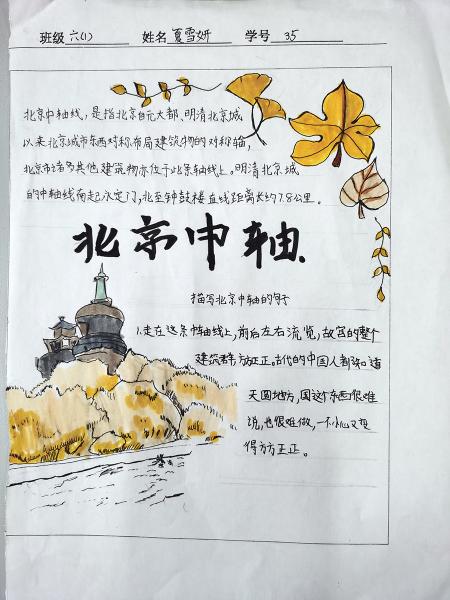 班级 六(1) 姓名 夏雪妍 学号 35
北京中轴线,是指北京自元大都、明清北京城
以来北京城市东西对称布局建筑物的对称轴,
北京市诸多其他建筑物亦位于此京轴线上。明清北京城
的中轴线南起永定门,北至钟鼓楼直线距离长约7.8公里。
北京中轴
描写北京中轴的句子
1.走在这条中轴线上,前后左右流览,故宫的整个
建筑群,方方正正。古代的中国人都知道
天圆地方,圆这个东西很难
说,也很难做,一不小心又变
得方方正正。